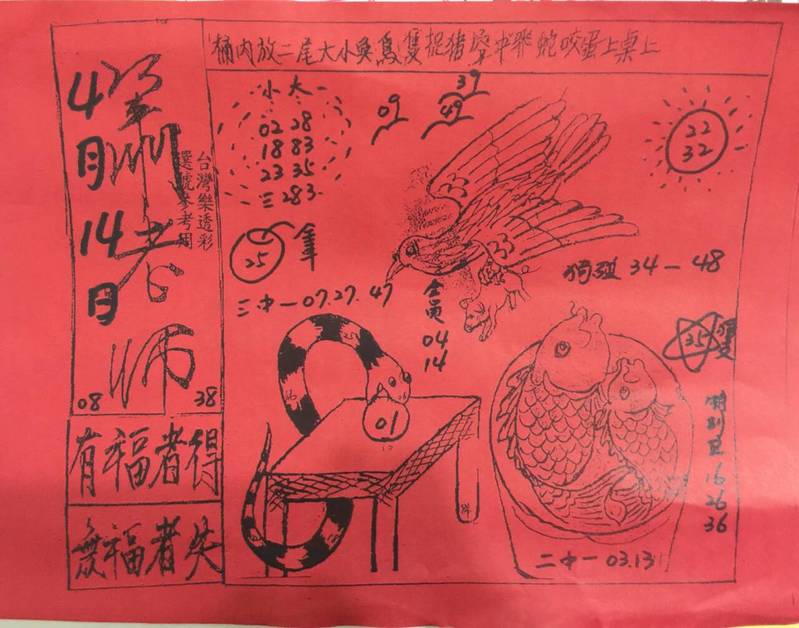 桶內放二尾大小魚鳥隻捉豬空中飛蛇咬蛋上桌上
4月14日
老师
台灣樂透彩
選號參考用
08 38
有福者得
無福者失
小 大
02 28
18 83
23 35
三 283
09
39
49
22
32
25
三中一 07.27.47
會員
04
14
獨碰 34-48
01
35 雙
特別號
16
26
36
二中一 03.13